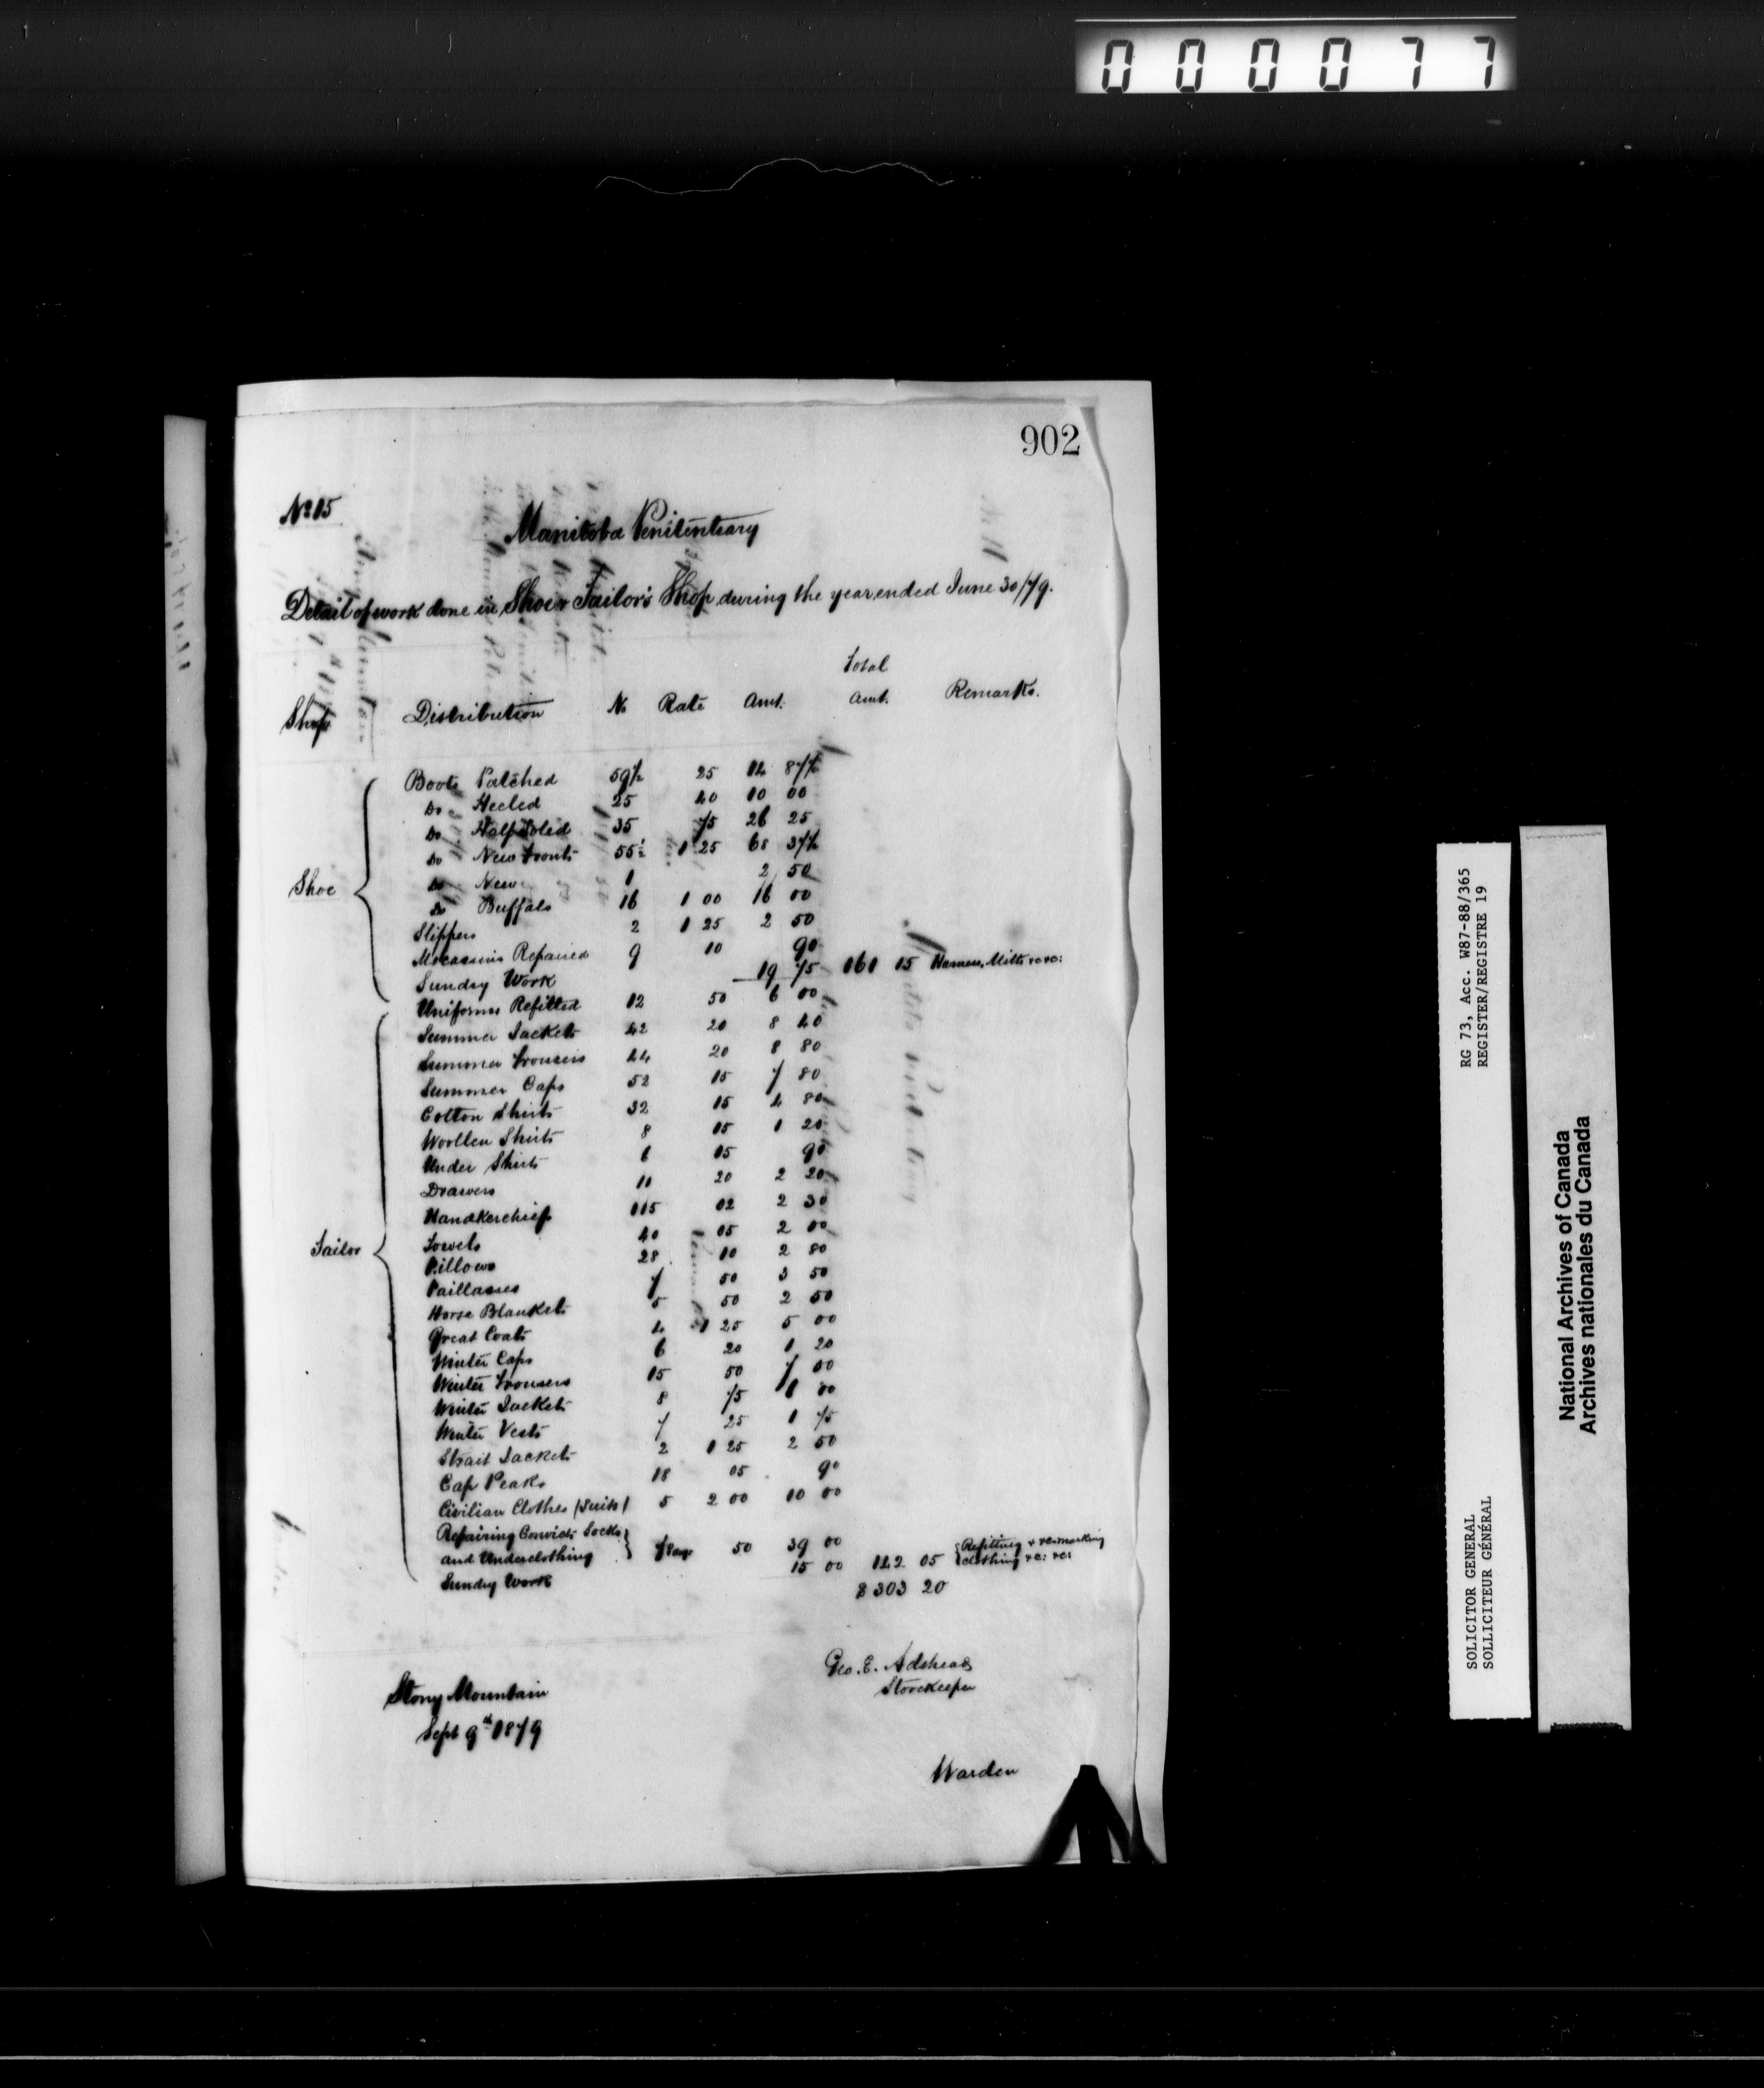 000077
902
No 15
Manitoba Penitentiary
Detail of work done in Shoe & Tailor's Shop during the year ended June 30/79.
Total
Shop Distribution No Rate Amt. Amt. Remarks.
Shoe
Boots Patched 59½ 25 14 87½
Do Heeled 25 40 10 00
Do Half Soled 35 75 26 25
Do New Fronts 55½ 1 25 68 37½
Do New 1 2 50
Do Buffalo 16 1 00 16 00
Slippers 2 1 25 2 50
Mocassins Repaired 9 10 90
Sundry Work 19 75 161 15 Harness, Mitts &c &c:
Tailor
Uniforms Refitted 12 50 6 00
Summer Jackets 42 20 8 40
Summer Trousers 44 20 8 80
Summer Caps 52 15 7 80
Cotton Shirts 32 15 4 80
Woollen Shirts 8 15 1 20
Under Shirts 6 15 90
Drawers 11 20 2 20
Handkerchief 115 02 2 30
Towels 40 05 2 00
Pillows 28 10 2 80
Paillasses 7 50 3 50
Horse Blankets 5 50 2 50
Great Coats 4 1 25 5 00
Winter Caps 6 20 1 20
Winter Trousers 15 50 7 00
Winter Jackets 8 75 6 00
Winter Vests 7 25 1 75
Strait Jackets 2 1 25 2 50
Cap Peaks 18 05 90
Civilian Clothes (Suits) 5 2 00 10 00
Repairing Convicts Socks
and Underclothing 78 days 50 39 00
Sundry Work 15 00 142 05 Refitting & re-marking
clothing &c: &c:
$303 20
Geo. E. Adshead
Storekeeper
Stony Mountain
Sept 9th 1879
Warden
RG 73, Acc. W87-88/365
REGISTER/REGISTRE 19
SOLICITOR GENERAL
SOLLICITEUR GÉNÉRAL
National Archives of Canada
Archives nationales du Canada